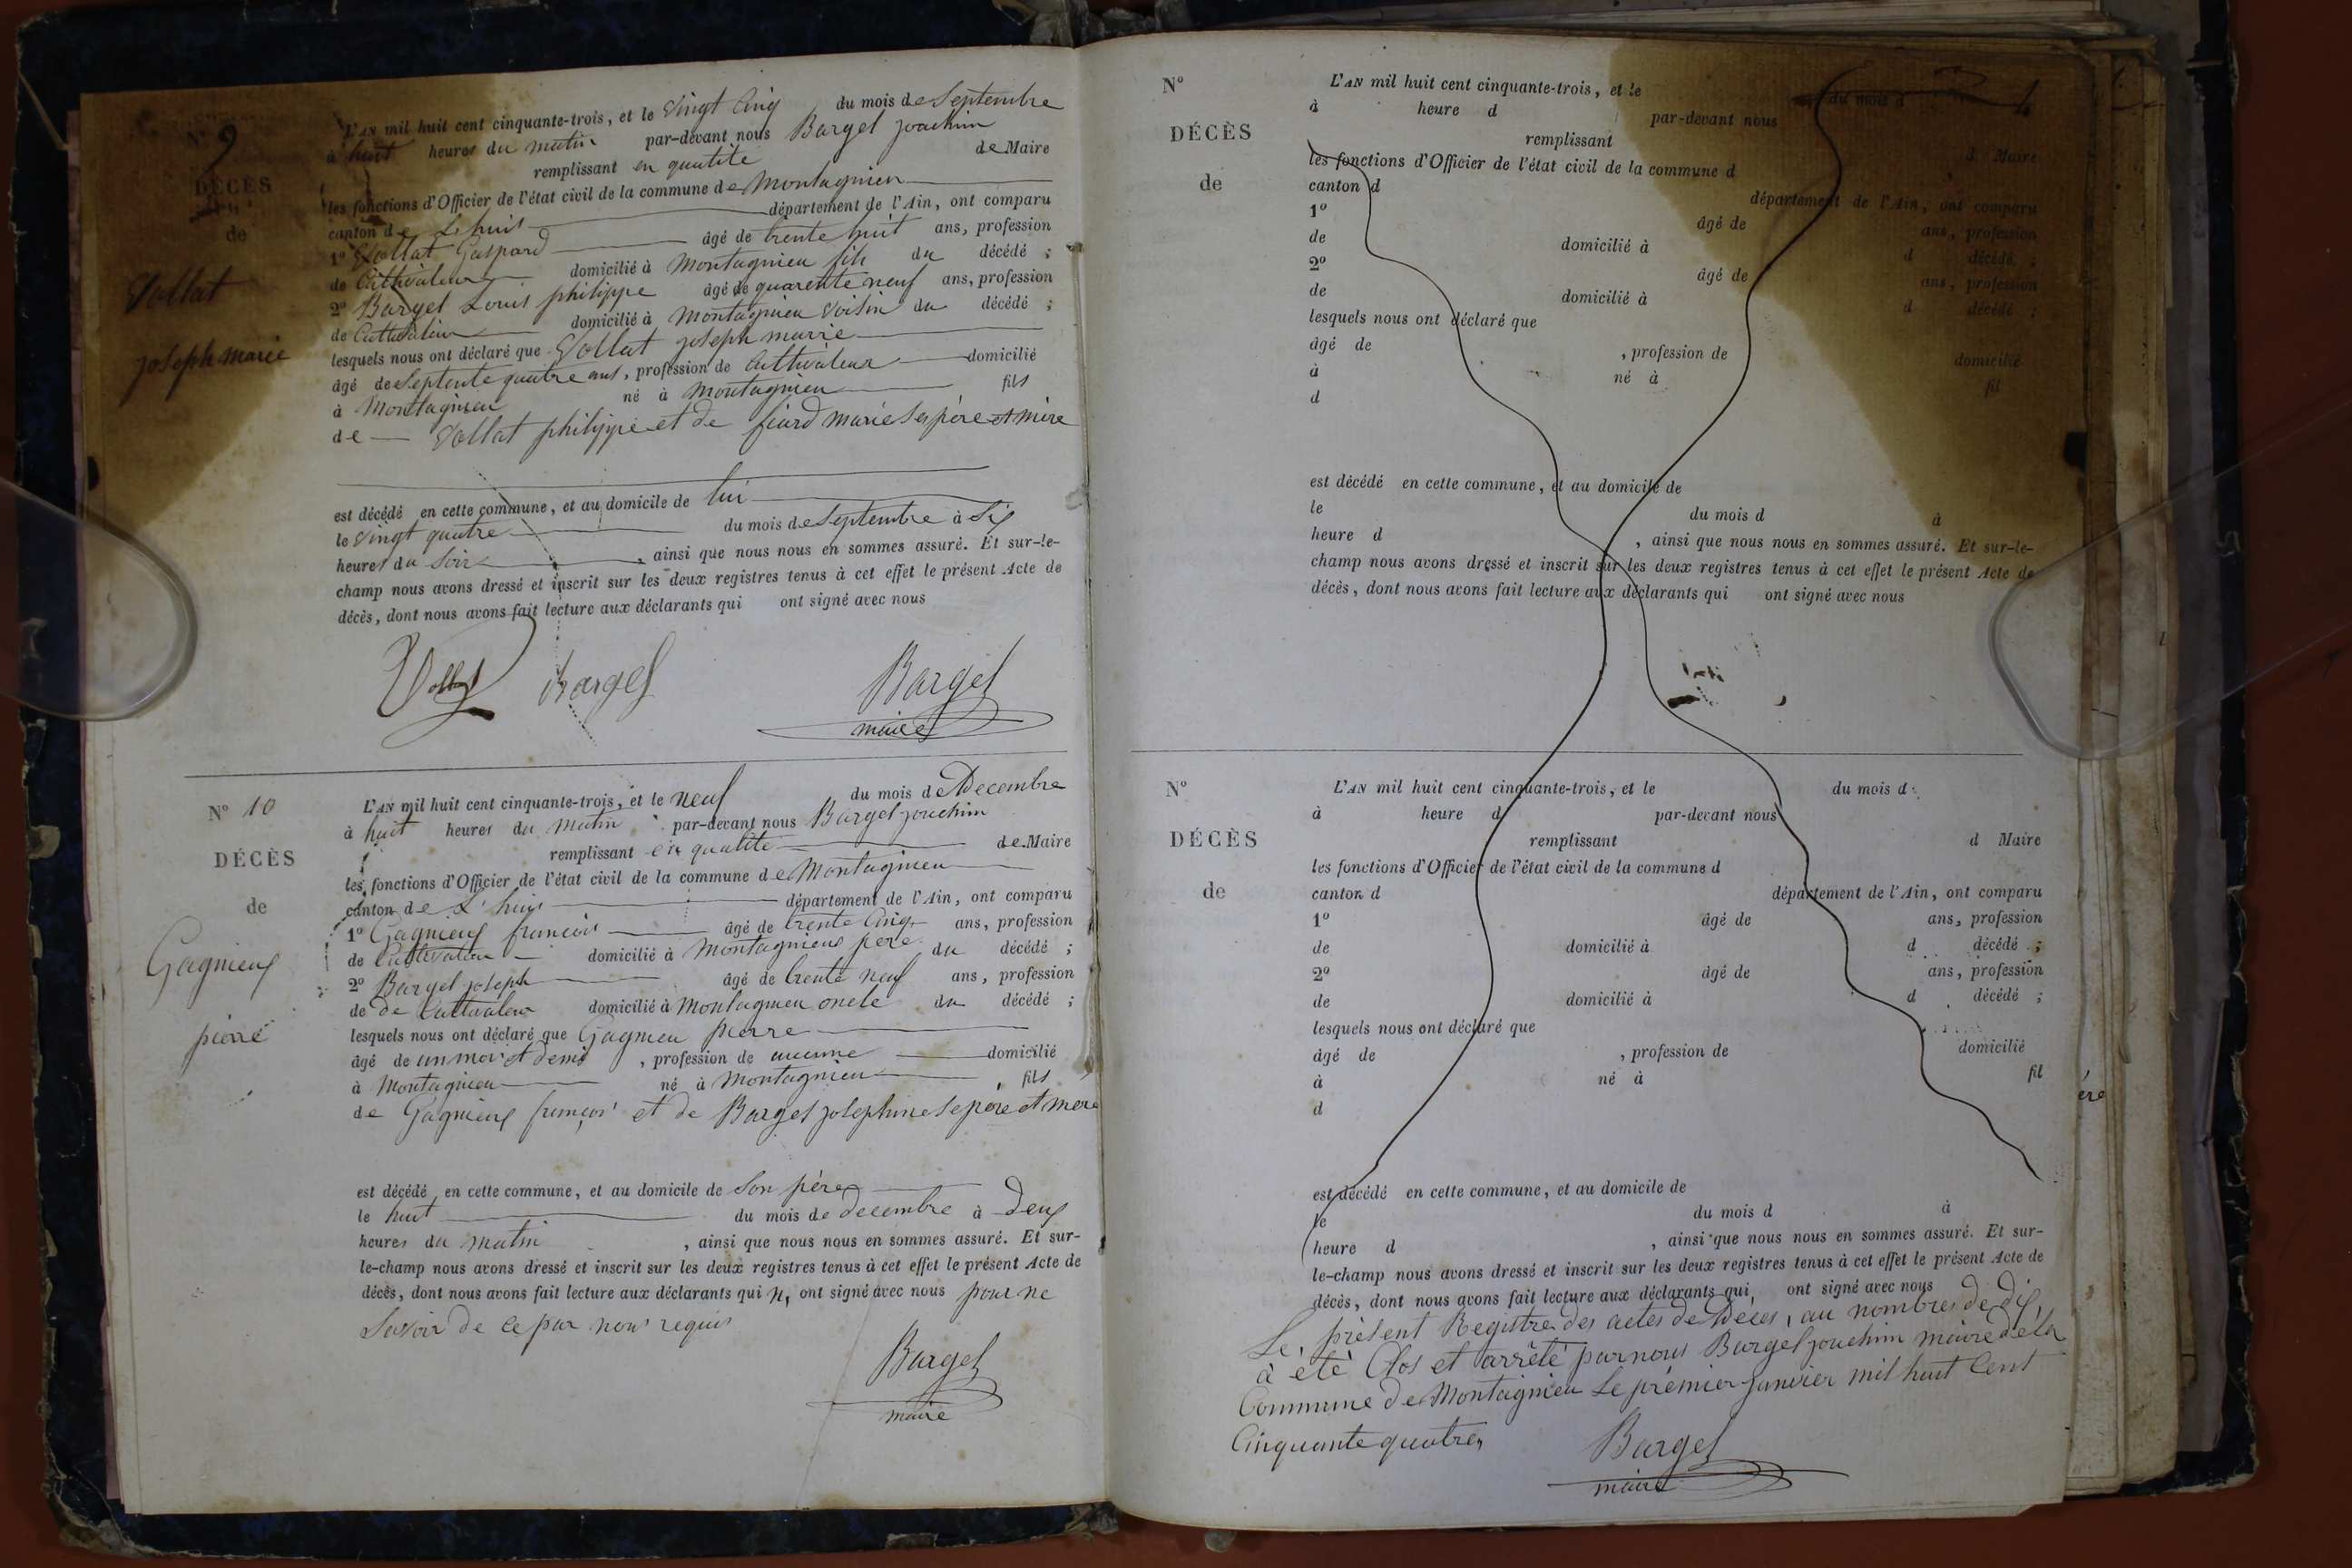 N° 9
DÉCÈS
de
Vollat
joseph marie
L'AN mil huit cent cinquante-trois, et le vingt Cinq du mois de Septembre
à huit heures du matin par-devant nous Bargel joachim
remplissant en qualité de Maire
les fonctions d'Officier de l'état civil de la commune de Montagnieu
canton de L'huis département de l'Ain, ont comparu
1° Vollat Gaspard âgé de trente huit ans, profession
de Cultivateur domicilié à Montagnieu fils du décédé ;
2° Bargel Louis philippe âgé de quarente neuf ans, profession
de Cultivateur domicilié à Montagnieu voisin du décédé ;
lesquels nous ont déclaré que Vollat joseph marie
âgé de Septente quatre ans, profession de Cultivateur domicilié
à Montagnieu né à Montagnieu fils
de Vollat philippe et de fiard marie Ses père et mère
est décédé en cette commune, et au domicile de lui
le vingt quatre du mois de Septembre à Six
heures du Soir, ainsi que nous nous en sommes assuré. Et sur-le-
champ nous avons dressé et inscrit sur les deux registres tenus à cet effet le présent Acte de
décès, dont nous avons fait lecture aux déclarants qui ont signé avec nous
Vollat Bargel Bargel
maire
N° 10
DÉCÈS
de
Gagnieux
pierre
L'AN mil huit cent cinquante-trois, et le neuf du mois de Decembre
à huit heures du matin par-devant nous Bargel joachim
remplissant en qualité de Maire
les fonctions d'Officier de l'état civil de la commune de Montagnieu
canton de L'huis département de l'Ain, ont comparu
1° Gagnieux francois âgé de trente Cinq ans, profession
de Cultivateur domicilié à Montagnieu père du décédé ;
2° Bargel joseph âgé de trente neuf ans, profession
de de Cultivateur domicilié à Montagnieu oncle du décédé ;
lesquels nous ont déclaré que Gagnieu pierre
âgé de un mois et demis, profession de aucune domicilié
à Montagnieu né à Montagnieu fils
de Gagnieux françois et de Bargel josephine Se père et mere
est décédé en cette commune, et au domicile de Son père
le huit du mois de decembre à Deux
heures du matin, ainsi que nous nous en sommes assuré. Et sur-
le-champ nous avons dressé et inscrit sur les deux registres tenus à cet effet le présent Acte de
décès, dont nous avons fait lecture aux déclarants qui n, ont signé avec nous pour ne
Savoir de ce par nous requis
Bargel
maire
4
N°
DÉCÈS
de
L'AN mil huit cent cinquante-trois, et le du mois d
à heure d par-devant nous
remplissant d Maire
les fonctions d'Officier de l'état civil de la commune d
canton d département de l'Ain, ont comparu
1° âgé de ans, profession
de domicilié à d décédé ;
2° âgé de ans, profession
de domicilié à d décédé ;
lesquels nous ont déclaré que
âgé de , profession de domicilié
à né à fil
d
est décédé en cette commune, et au domicile de
le du mois d à
heure d , ainsi que nous nous en sommes assuré. Et sur-le-
champ nous avons dressé et inscrit sur les deux registres tenus à cet effet le présent Acte de
décès, dont nous avons fait lecture aux déclarants qui ont signé avec nous
N°
DÉCÈS
de
L'AN mil huit cent cinquante-trois, et le du mois d
à heure d par-devant nous
remplissant d Maire
les fonctions d'Officier de l'état civil de la commune d
canton d département de l'Ain, ont comparu
1° âgé de ans, profession
de domicilié à d décédé ;
2° âgé de ans, profession
de domicilié à d décédé ;
lesquels nous ont déclaré que
âgé de , profession de domicilié
à né à fil
d
est décédé en cette commune, et au domicile de
le du mois d à
heure d , ainsi que nous nous en sommes assuré. Et sur-
le-champ nous avons dressé et inscrit sur les deux registres tenus à cet effet le présent Acte de
décès, dont nous avons fait lecture aux déclarants qui, ont signé avec nous
Le, présent Registre des actes de Décès, au nombres de dix,
à été Clos et arrêté par nous Bargel joachim maire de la
Commune de Montagnieu Le premier janvier mil huit Cent
Cinquante quatre,
Bargel
maire